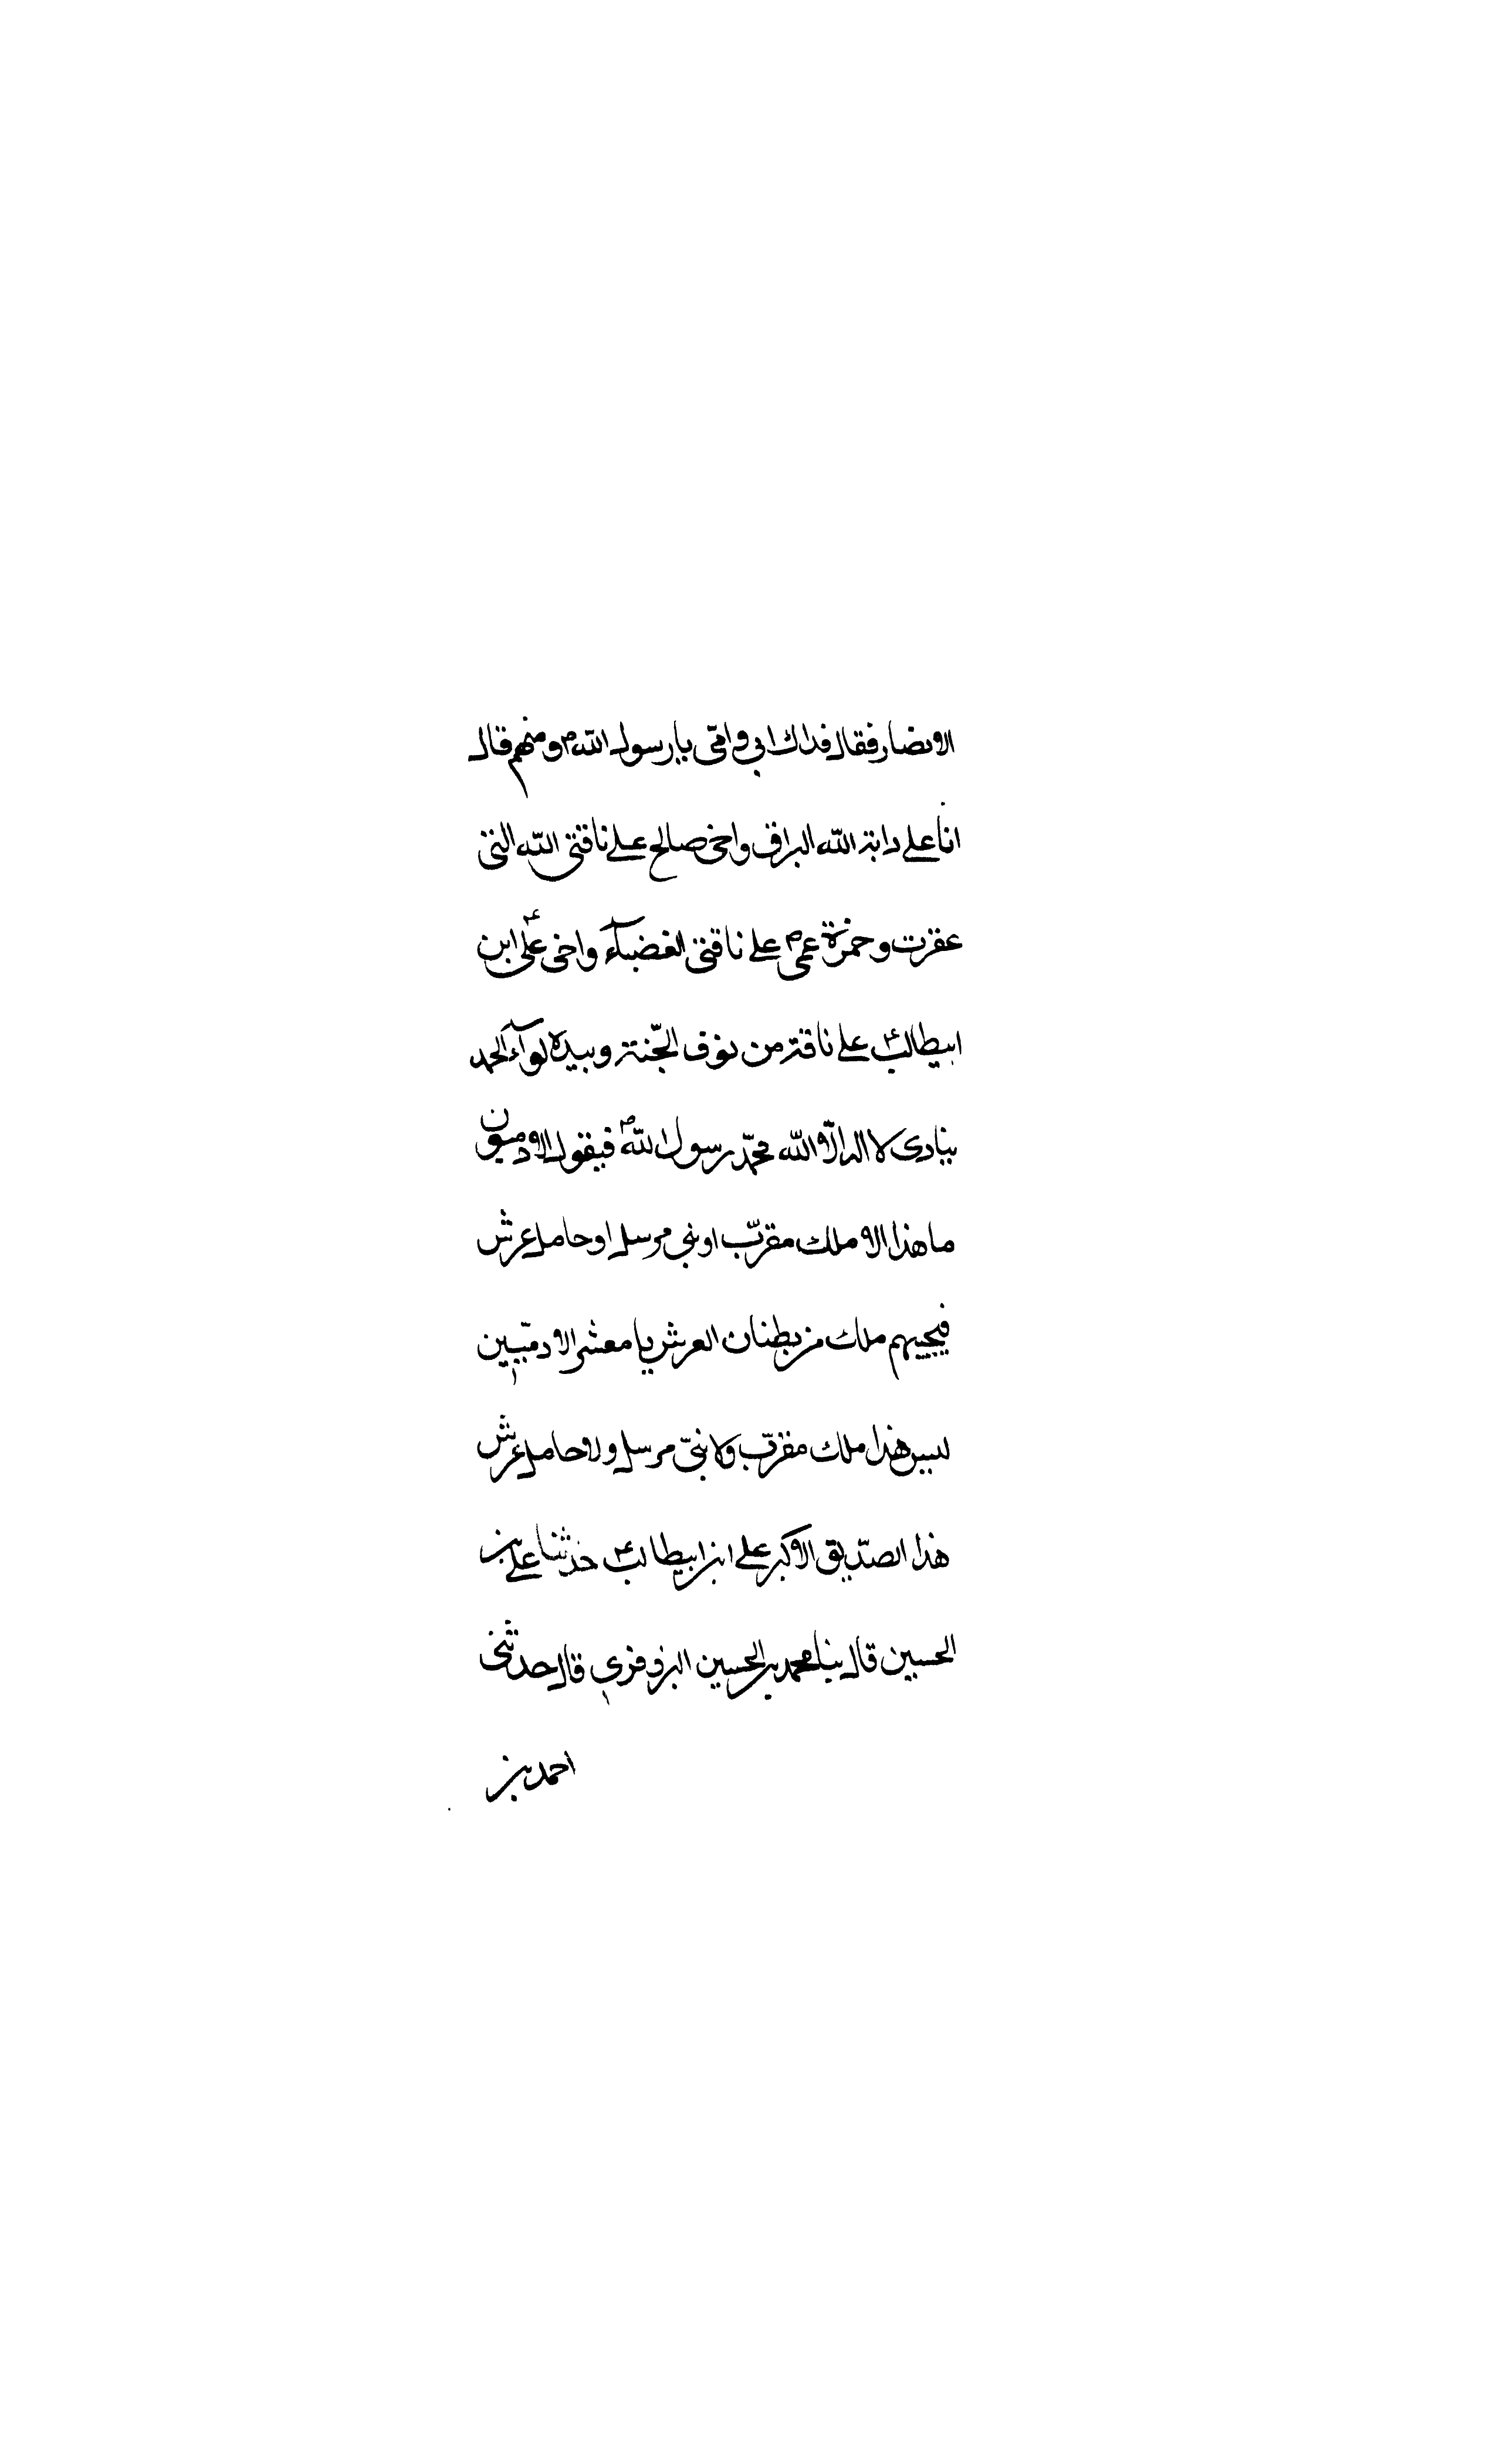 الانصار فقال فداك ابي وامّى يا رسول اللهص ومنهم قال
انا على دابة الله البراق واخى صالح على ناقتى الله التى
عقرت وحمزة عمىص على ناقتى الغضبآء واخى علىّ ابن
ابيطالبع على ناقة من نوق الجّنة وبيده لوآء الحمد
ينادى لا اله الّا الله محمّد رسول اللهص فيقول الادميون
ما هذا الا ملك مقرّب او نبى مرسل او حامل عرش
فيجيبهم ملك من بطنان العرش يا معشر الادميّين
ليس هذا ملك مقرّب ولا نبىّ مرسل ولا حامل عرش
هذا الصدّيق الاكبر على ابن ابيطالبع حدثنا على بن
الحسين قال بنا محمد بن الحسين البزوفري قال حدثنى
احمد بن